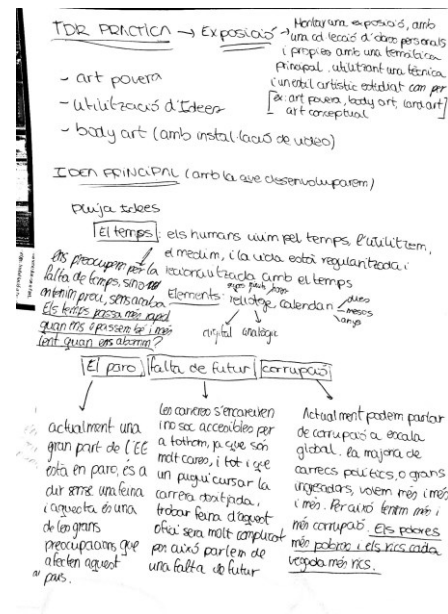 TDR PRACTICA → Exposició → Montar una exposició, amb
una col·lecció d'obres personals
i propies amb una temàtica
principal, utilitzant una tècnica
i un estil artístic estudiat com per
[ex: art povera, body art, land art]
art conceptual
- art povera
- utilització d'Idees
- body art (amb instal·lació de video)
IDEA PRINCIPAL (amb la que desenvoluparem)
Pluja Idees
El temps: els humans vivim pel temps, l'utilitzem,
el medim, i la vida està regularitzada i
amb el temps
ens preocupem per la
falta de temps, sino
en tenim prou, sens acaba
Els temps passa més rapid
quan ens o passem bé i més
lent quan ens aborrim?
Elements: rellotge, calendari
dies
mesos
anys
digital analògic
El paro falta de futur corrupció
actualment una
gran part de l'EE
està en paro, és a
dir sense una feina
i aquesta és una
de les grans
preocupacions que
afecten aquest
país.
les carreres s'encareixen
i no soc accesibles per
a tothom, ja que són
molt cares, i tot i que
un pugui cursar la
carrera desitjada,
trobar feina d'aquest
ofici sera molt complicat
per això parlem de
una falta de futur
Actualment podem parlar
de corrupció a escala
global. la majoria de
carrecs polítics, o grans
ingresadors, volem més i més
i més. Per això tenim més i
més corrupció. Els pobres
més pobres i els rics cada
vegada més rics.